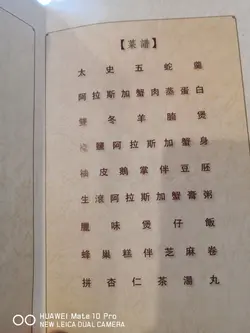 【菜譜】
太史五蛇羹
阿拉斯加蟹肉蒸蛋白
冬羊腩煲
阿拉斯加蟹身
柚皮鵝掌伴豆胚
生滾阿拉斯加蟹膏粥
臘味煲仔飯
蜂巢糕伴芝麻卷
拼杏仁茶湯丸
HUAWEI Mate 10 Pro
NEW LEICA DUAL CAMERA